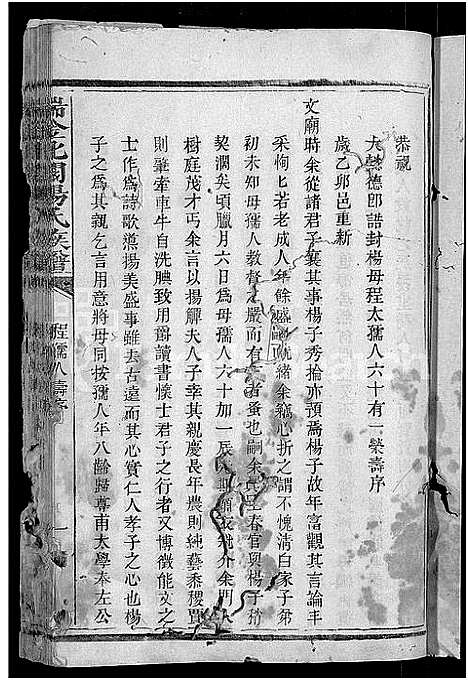 恭祝
大懿德郎誥封楊母程太孺人六十有一榮壽序
歲乙卯邑重新
文廟時余從諸君子襄其事楊子秀掄亦預焉楊子故年富觀其言論丰
采恂匕若老成人年餘盛緒余竊心折之謂不愧清白家子弟
初未知母孺人教督之嚴而有者蚤也嗣余春官與楊子
契濶矣頃臘月六日為母孺人六十加一辰外余門人
樹庭茂才丐余言以揚觶夫人子幸其親慶長年農則純藝黍稷賈
則肇牽車牛自洗腆致用爵讀書懷士君子之行者又博徵能文之
士作為詩歌讚揚美盛事雖去古遠而其心實仁人孝子之心也楊
子之為其親乞言用意將毋同按孺人年八齡歸尊甫太學奉左公
瑞金北關楊氏族譜
程孺人壽序
一